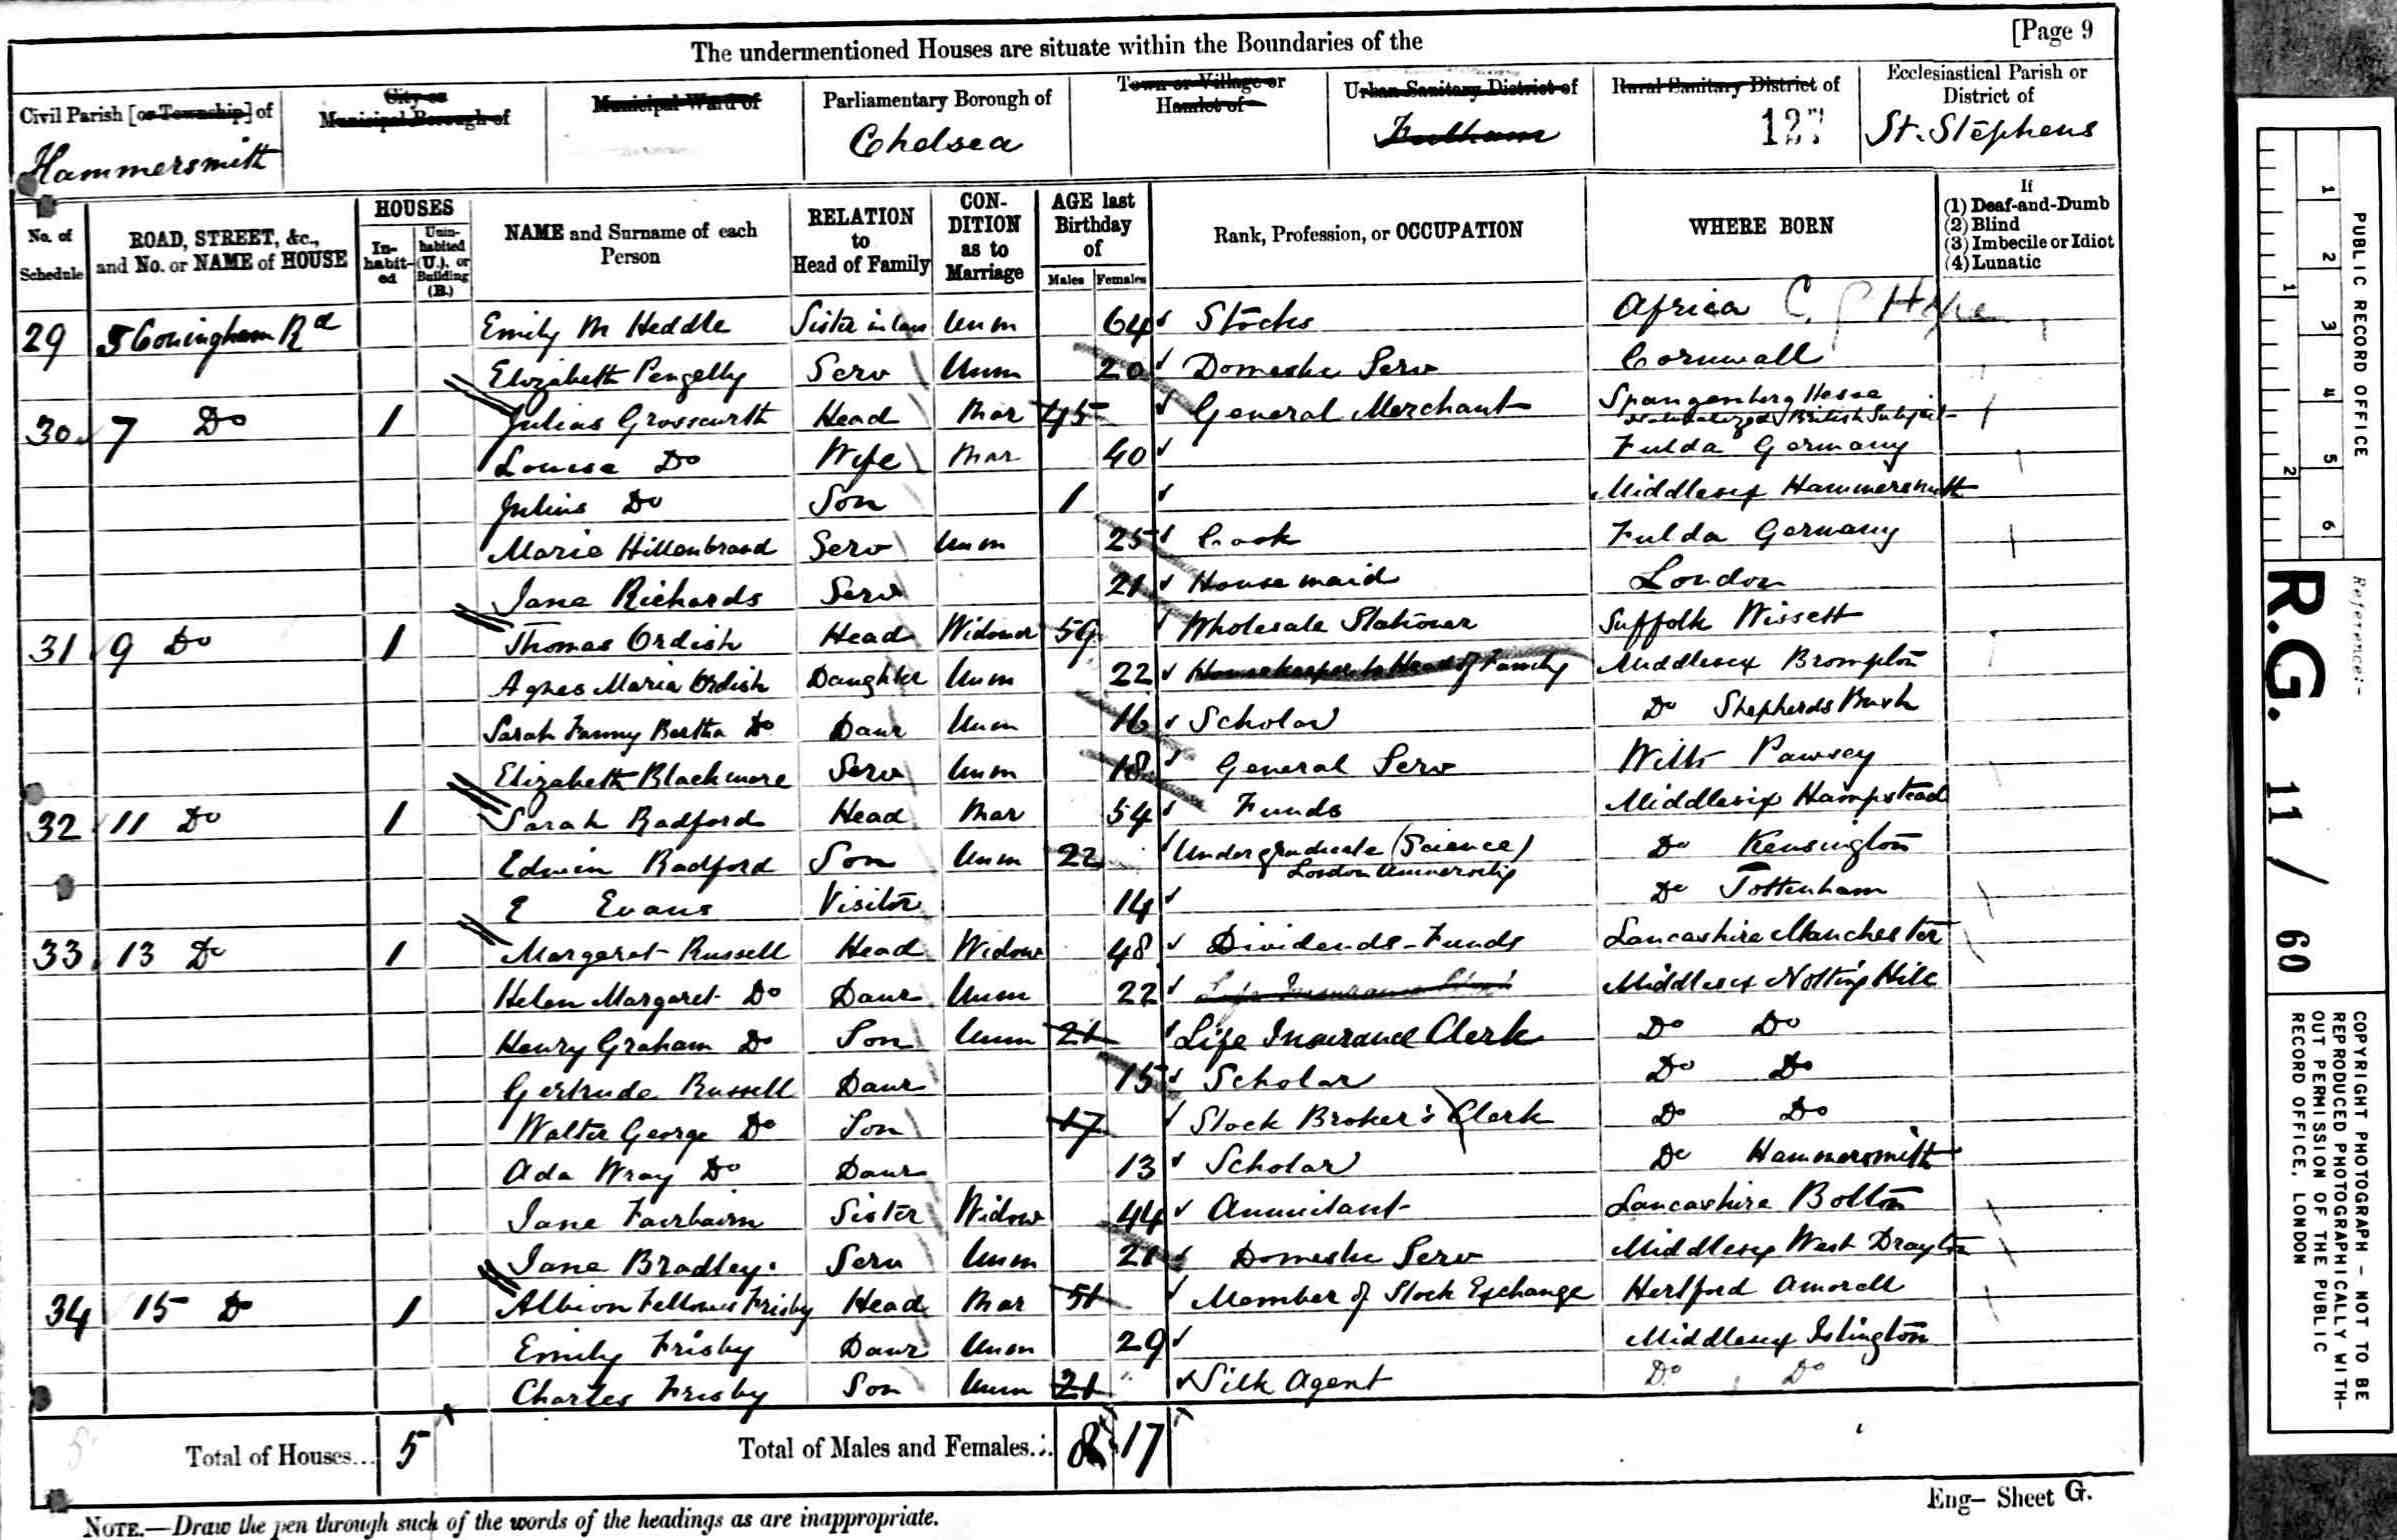 [Page 9
The undermentioned Houses are situate within the Boundaries of the
Civil Parish [or Township] of
City or Municipal Borough of
Municipal Ward of
Parliamentary Borough of
Town or Village or Hamlet of
Urban Sanitary District of
Rural Sanitary District of
Ecclesiastical Parish or District of
Hammersmith Chelsea Fulham 127 St. Stephens
No. of Schedule
ROAD, STREET, &c., and No. or NAME of HOUSE
HOUSES
In-habit-ed
Unin-habited (U.), or Building (B.)
NAME and Surname of each Person
RELATION to Head of Family
CON-DITION as to Marriage
AGE last Birthday of
Males Females
Rank, Profession, or OCCUPATION
WHERE BORN
If
(1) Deaf-and-Dumb
(2) Blind
(3) Imbecile or Idiot
(4) Lunatic
29 5 Coningham Rd Emily M Heddle Sister in law Unm 64 Stocks Africa C G Hope
Elizabeth Pengelly Serv Unm 20 Domestic Serv Cornwall
30 7 Do 1 Julius Grosscurth Head Mar 45 General Merchant Spangenberg Hesse
Naturalized British Subject
Louisa Do Wife Mar 40 Fulda Germany
Julius Do Son 1 Middlesex Hammersmith
Marie Hillenbrand Serv Unm 25 Cook Fulda Germany
Jane Richards Serv 21 Housemaid London
31 9 Do 1 Thomas Ordish Head Widower 59 Wholesale Stationer Suffolk Wissett
Agnes Maria Ordish Daughter Unm 22 Housekeeper to Head of Family Middlesex Brompton
Sarah Fanny Bertha Do Daur Unm 16 Scholar Do Shepherds Bush
Elizabeth Blackmore Serv Unm 18 General Serv Wilts Pawsey
32 11 Do 1 Sarah Radford Head Mar 54 Funds Middlesex Hampstead
Edwin Radford Son Unm 22 Undergraduate (Science) London University Do Kensington
E Evans Visitor 14 Do Tottenham
33 13 Do 1 Margaret Russell Head Widow 48 Dividends-Funds Lancashire Manchester
Helen Margaret Do Daur Unm 22 Life Insurance Clerk Middlesex Notting Hill
Henry Graham Do Son Unm 21 Life Insurance Clerk Do Do
Gertrude Russell Daur 15 Scholar Do Do
Walter George Do Son 17 Stock Broker's Clerk Do Do
Ada Wray Do Daur 13 Scholar Do Hammersmith
Jane Fairbairn Sister Widow 44 Annuitant Lancashire Bolton
Jane Bradley Serv Unm 21 Domestic Serv Middlesex West Drayton
34 15 Do 1 Albion Fellows Frisby Head Mar 51 Member of Stock Exchange Hertford Amwell
Emily Frisby Daur Unm 29 Middlesex Islington
Charles Frisby Son Unm 21 Silk Agent Do Do
Total of Houses... 5 Total of Males and Females... 8 17
Eng— Sheet G.
NOTE.—Draw the pen through such of the words of the headings as are inappropriate.
PUBLIC RECORD OFFICE
1 2 3 4 5 6
1 2
Reference:-
R.G. 11 / 60
COPYRIGHT PHOTOGRAPH - NOT TO BE
REPRODUCED PHOTOGRAPHICALLY WITH-
OUT PERMISSION OF THE PUBLIC
RECORD OFFICE, LONDON